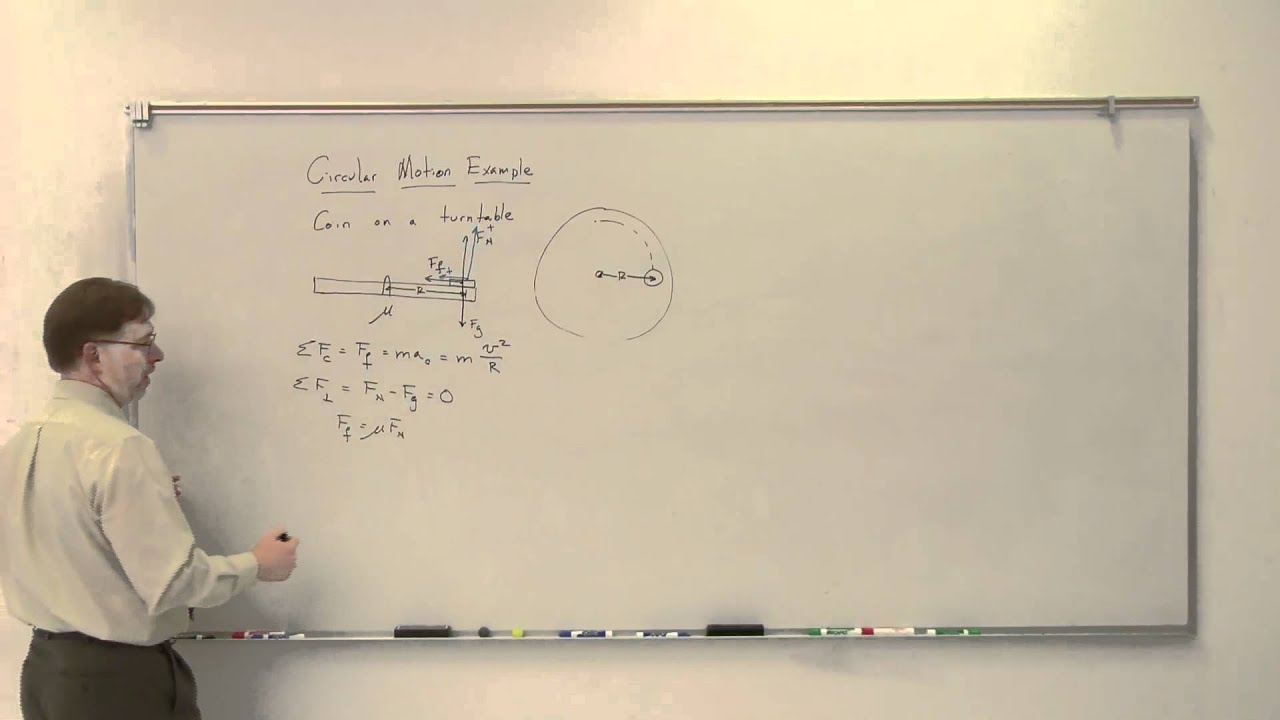 Circular Motion Example
Coin on a turntable
+
F_N
F_f +
R
R
μ
F_g
ΣF_c = F_f = ma_c = m v²/R
ΣF_⊥ = F_N - F_g = 0
F_f = μF_N